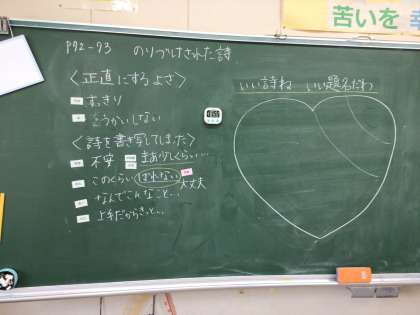 苦いを 幸
P92-93 のりづけされた詩
〈正直にするよさ〉
すっきり
こうかいしない
いい詩ね いい題名だわ
〈詩を書き写してしまった〉
不安 まあ少しくらい…
このくらいばれない 大丈夫
なんでこんなこと…
上手だからきっと…